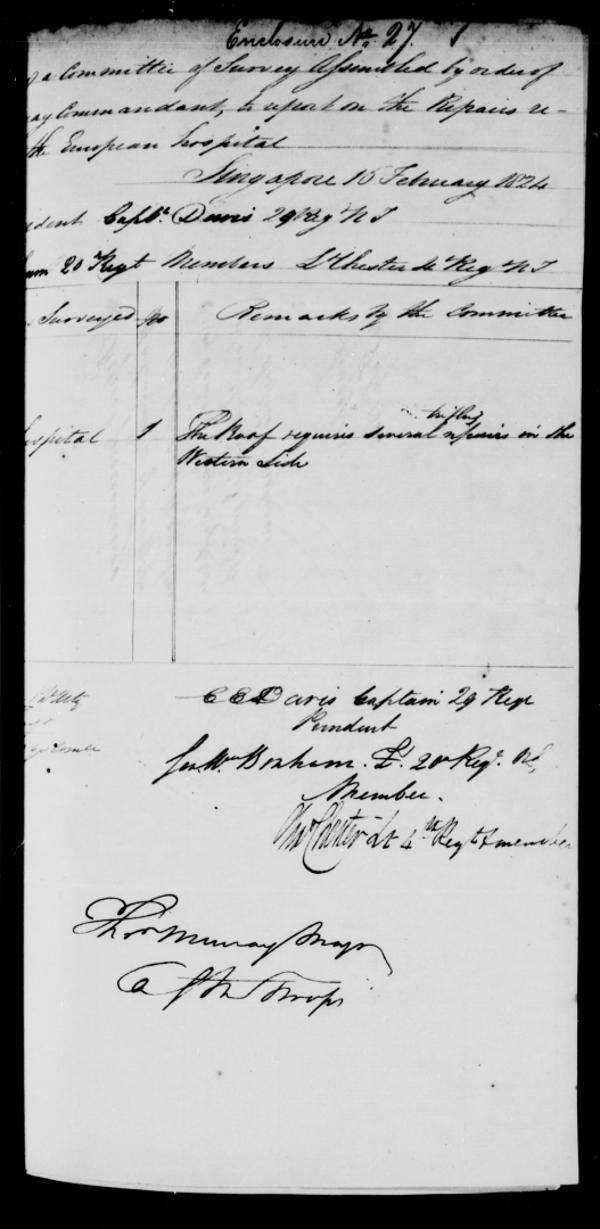 Enclosure No. 27.
a Committee of Survey Assembled by order of
Commandant, to report on the Repairs re-
the European hospital
Singapore 16 February 1824
Captn. Davis 29 Regt N I
20 Regt Members Lt Chester 4th Regt N I
Surveyed No Remarks by the Committee
hospital 1 The Roof requires several trifling repairs in the
Western Side
C E Davis Captain 29 Regt
President
Bonham. Lt. 20 Regt. N I,
Member.
Chester Lt 4th Regt & member
Thos Murray Major
Troops